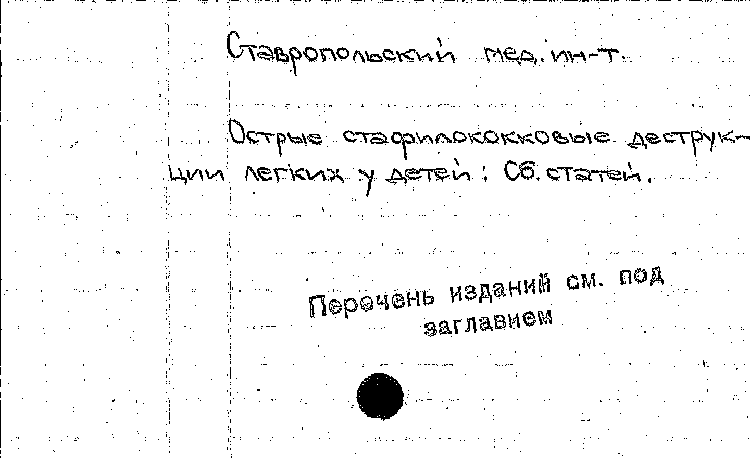 Ставропольский мед. ин-т.
Острые стафилококковые деструк-
ции легких у детей : Сб. статей.
Перечень изданий см. под
заглавием